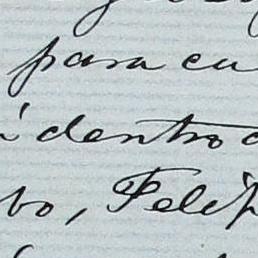 para cu
i dentro d
bo, Felip